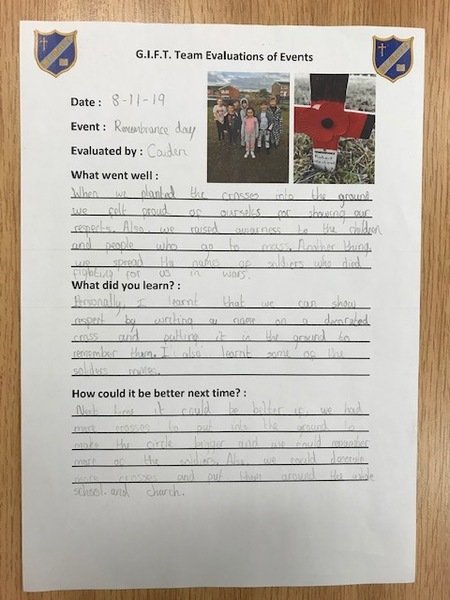 G.I.F.T. Team Evaluations of Events
Date : 8-11-19
Event : Remembrance day
Evaluated by : Caiden
What went well :
When we planted the crosses into the ground
we felt proud of ourselves for showing our
respects. Also, we raised awarness to the children
and people who go to mass. Another thing,
we spread the names of soldiers who died
fighting for us in wars.
What did you learn? :
Personally, I learnt that we can show
respect by writing a name on a decorated
cross and putting it in the ground to
remember them. I also learnt some of the
soldiers names.
How could it be better next time? :
Next time it could be better if we had
more crosses to put into the ground to
make the circle bigger and we could remember
more of the soldiers. Also, we could decorate
more crosses and put them around the whole
school and church.